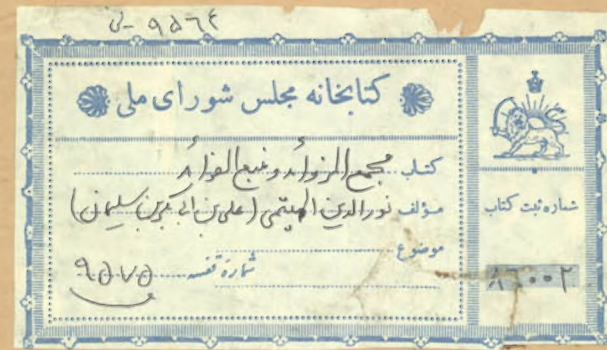 ۹۵۶۴ - ف
کتابخانه مجلس شورای ملی
کتاب مجمع الزوائد و منبع الفوائد
مؤلف نورالدین الهیتمی (علی بن ابی بکر بن سلیمان)
موضوع
شماره قفسه ۹۵۷۵
شماره ثبت کتاب
۸۶۰۰۲